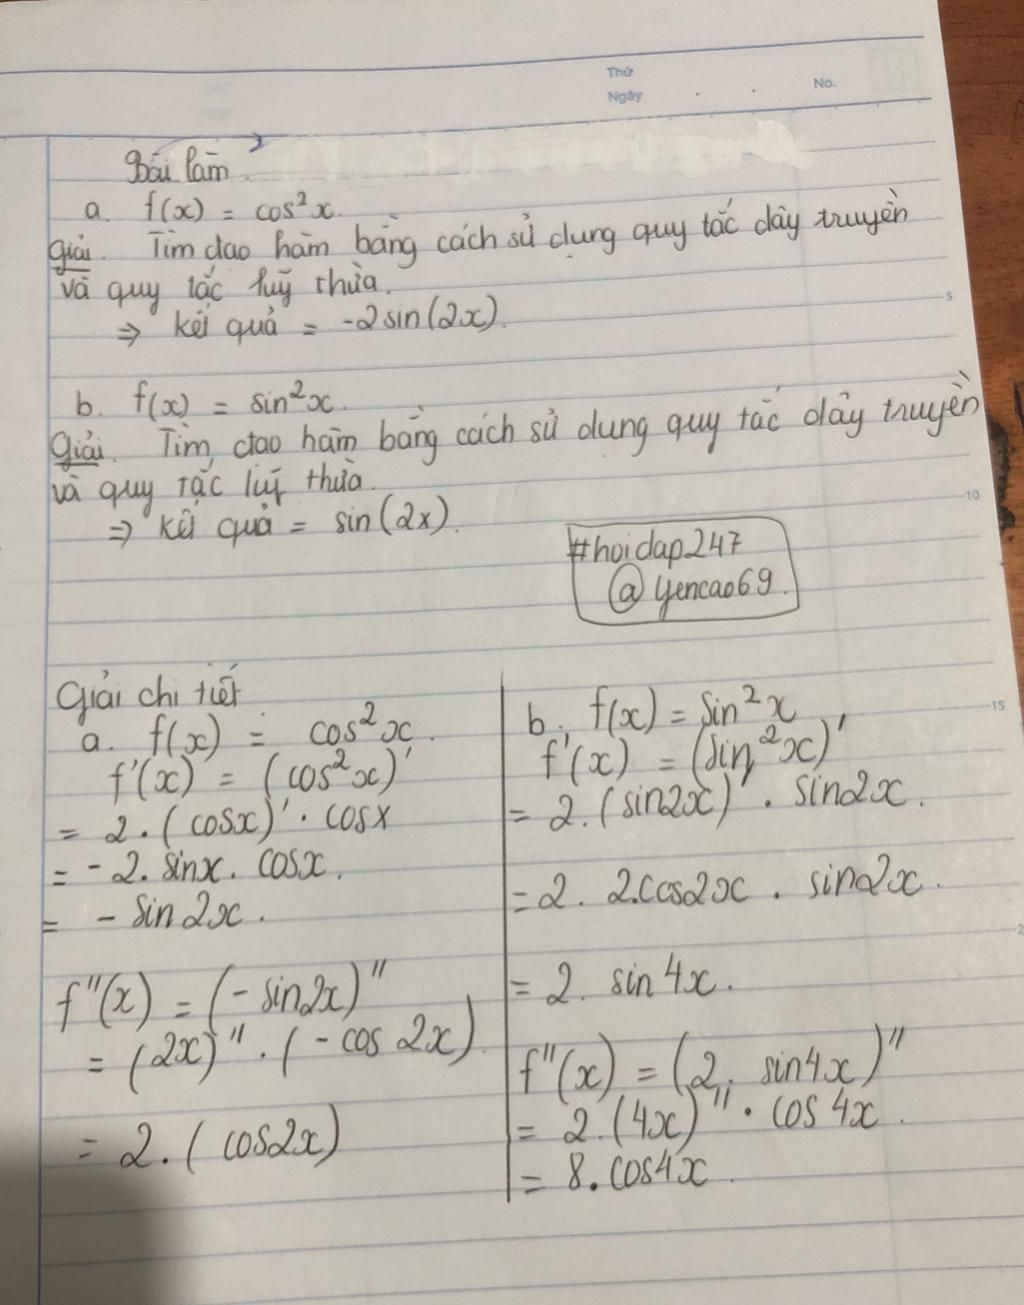 Thứ
Ngày
No.
Bài làm.
a. f(x) = cos²x.
Giải. Tìm đạo hàm bằng cách sử dụng quy tắc dây truyền
và quy tắc luỹ thừa.
⇒ kết quả = -2sin(2x).
5
b. f(x) = sin²x.
Giải. Tìm đạo hàm bằng cách sử dụng quy tắc dây truyền
và quy tắc luỹ thừa.
10
⇒ kết quả = sin(2x).
#hoidap247
@yencao69.
Giải chi tiết
a. f(x) = cos²x.
f'(x) = (cos²x)'
= 2.(cosx)'.cosx
= -2.sinx.cosx.
= - sin2x.
f''(x) = (-sin2x)''
= (2x)''.(-cos 2x)
= 2.(cos2x)
15
b, f(x) = sin²x
f'(x) = (sin²x)'
= 2.(sin2x)'. sin2x.
= 2. 2.cos2x . sin2x.
= 2. sin4x.
f''(x) = (2. sin4x)''
= 2.(4x)''. cos4x.
= 8.cos4x.